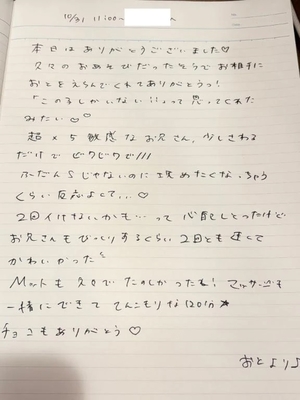 10/31 11:00〜
本日はありがとうございました♡
久々のおあそびだったそうでお相手に
おとをえらんでくれてありがとうっ!
「このるしかいない!!」って思ってくれた
みたい♡♡
超×5敏感なお兄さん、少しさわる
だけでビクビクで///
ふだんSじゃないのに攻めたくなっちゃう
くらい反応よくて...♡
2回イけないかも…って心配しとったけど
お兄さんもびっくりするくらい2回とも速くて
かわいかった
Mットも久々でたのしかったね! マッサージも
一緒にできててんこもりな120分☆
チョコもありがとう♡
おとより♪